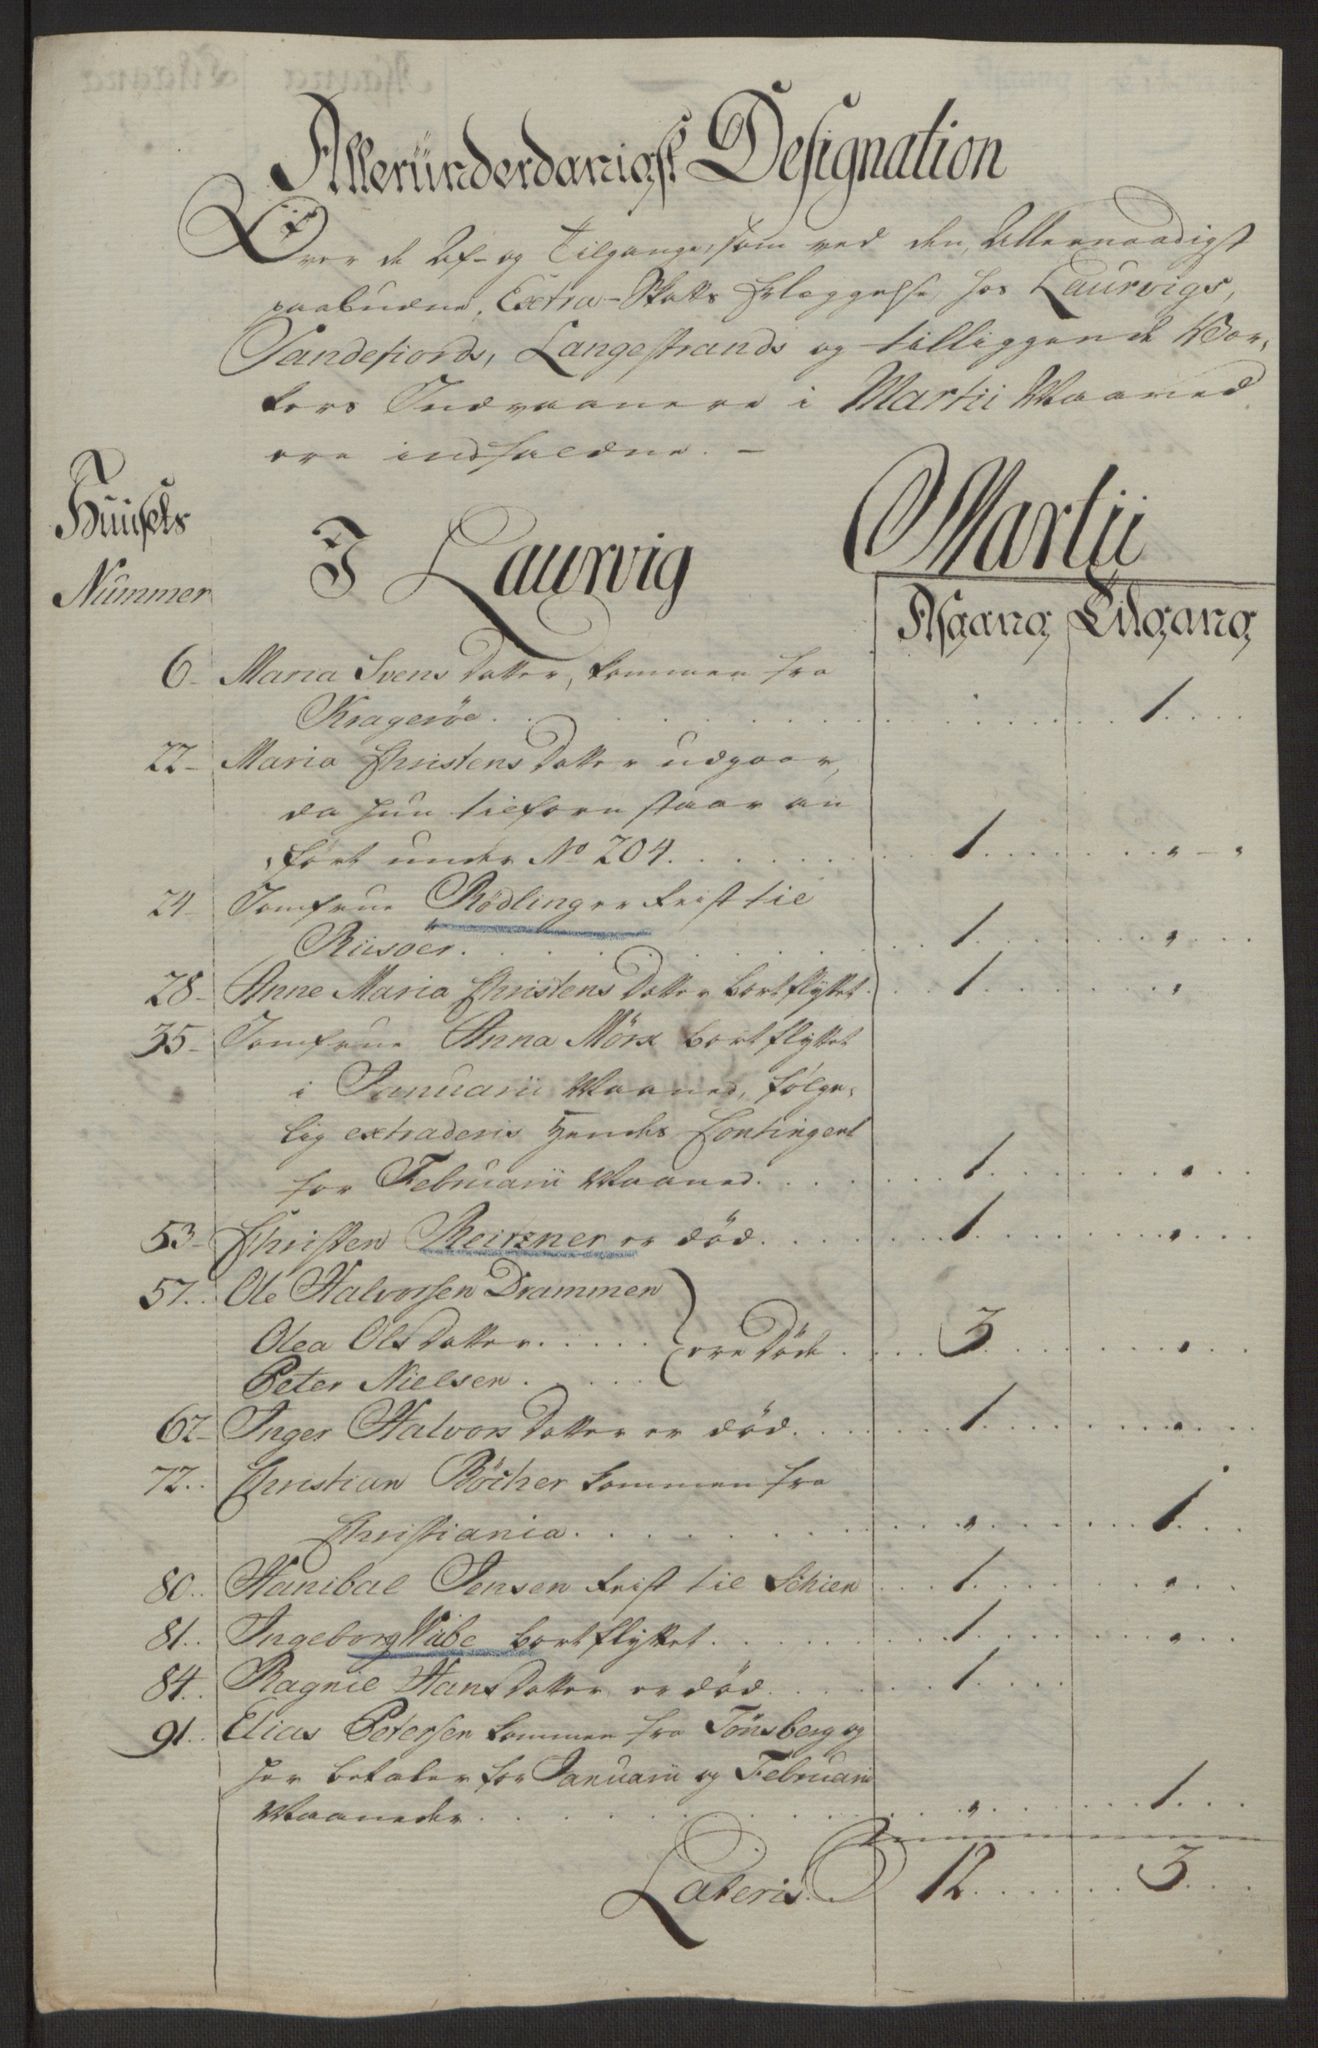 Alleründerdanigst Designation
Over de Af- og Tilgange, som ved den, Allernaadigst
paabudne, Extra-Skatts Erlæggelse, hos Laurvigs,
Sandefiords, Langestrands og tilliggende Wor,
kers Indvaanere i Martii Maaned
ere indfaldne. –
Huusets
Nummer
I Laurvig
Martii
Afgang Tilgang
6 Maria Svens Datter, kommen fra
Kragerøe . . . 1
22 Maria Christens Datter udgaar,
da hun tilforn staar an
ført under No 204. 1
24 Jomfrue Rödling er reist til
Riisöer. 1
28 Anne Maria Christens Datter bortflyttet 1
35 Jomfrue Anna Mörx bortflyttet
i Januarii Maaned, følge,
lig extraderis Hendes Contingent
for Februarii Maaned. 1
53 Christen Reitzner er død. 1
57. Ole Halvorsen Drammen
Olea Ols Datter . . . ere Døde 3
Peter Nielsen.
62 Inger Halvors Datter er død. 1
72. Christian Böcher kommen fra
Christiania. 1
80. Hanibal Jensen reist til Schien 1
81. Ingeborg Wibe bortflyttet. 1
84. Ragnil Hans Datter er død. 1
91. Elias Petersen kommen fra Tönsberg og
her betaler for Januarii og Februarii
Maaneder. 1
Lateris. 12 3